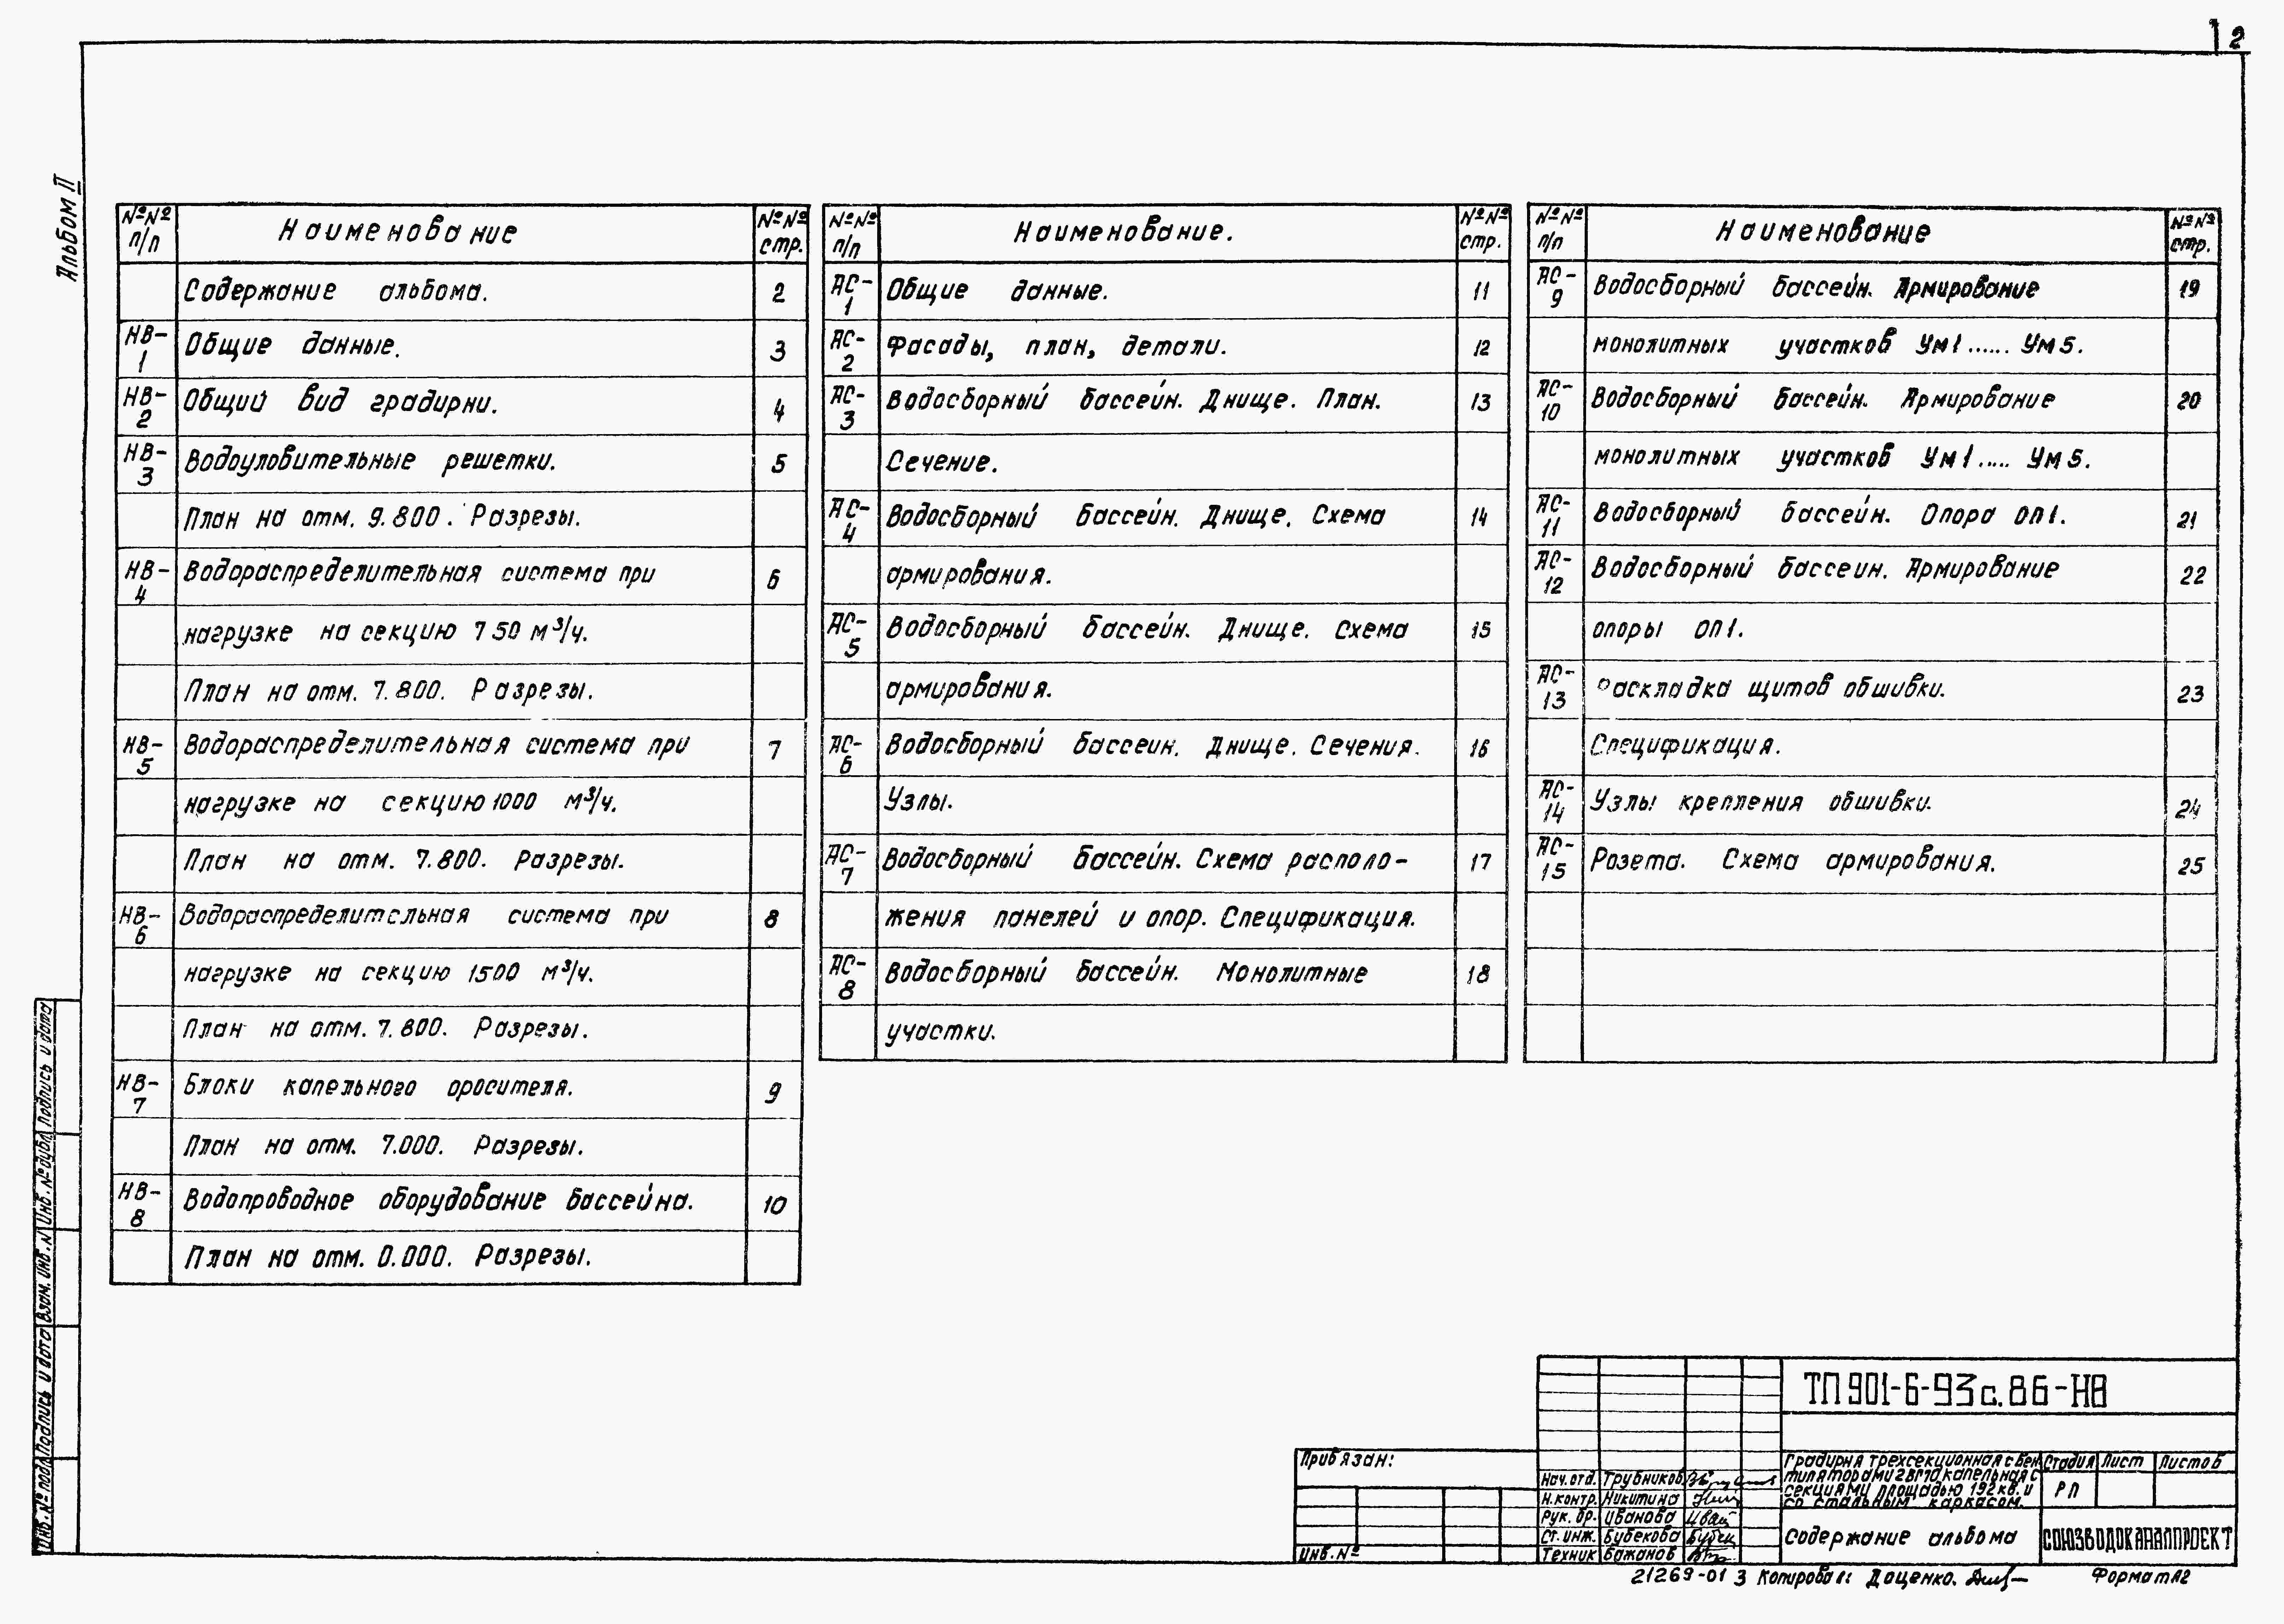 2
Альбом II
№№ п/п Наименование №№ стр.
Содержание альбома. 2
НВ-1 Общие данные. 3
НВ-2 Общий вид градирни. 4
НВ-3 Водоуловительные решетки. 5
План на отм. 9.800. Разрезы.
НВ-4 Водораспределительная система при 6
нагрузке на секцию 750 м³/ч.
План на отм. 7.800. Разрезы.
НВ-5 Водораспределительная система при 7
нагрузке на секцию 1000 м³/ч.
План на отм. 7.800. Разрезы.
НВ-6 Водораспределительная система при 8
нагрузке на секцию 1500 м³/ч.
План на отм. 7.800. Разрезы.
НВ-7 Блоки капельного оросителя. 9
План на отм. 7.000. Разрезы.
НВ-8 Водопроводное оборудование бассейна. 10
План на отм. 0.000. Разрезы.
№№ п/п Наименование. №№ стр.
АС-1 Общие данные. 11
АС-2 Фасады, план, детали. 12
АС-3 Водосборный бассейн. Днище. План. 13
Сечение.
АС-4 Водосборный бассейн. Днище. Схема 14
армирования.
АС-5 Водосборный бассейн. Днище. Схема 15
армирования.
АС-6 Водосборный бассейн. Днище. Сечения. 16
Узлы.
АС-7 Водосборный бассейн. Схема располо- 17
жения панелей и опор. Спецификация.
АС-8 Водосборный бассейн. Монолитные 18
участки.
№№ п/п Наименование №№ стр.
АС-9 Водосборный бассейн. Армирование 19
монолитных участков Ум1...... Ум5.
АС-10 Водосборный бассейн. Армирование 20
монолитных участков Ум1..... Ум5.
АС-11 Водосборный бассейн. Опора ОП1. 21
АС-12 Водосборный бассейн. Армирование 22
опоры ОП1.
АС-13 Раскладка щитов обшивки. 23
Спецификация.
АС-14 Узлы крепления обшивки. 24
АС-15 Розета. Схема армирования. 25
Инв. № подл Подпись и дата Взам. инв. N Инв. № дубл Подпись и дата
Привязан:
Инв. №
Нач. отд. Трубников
Н. контр. Никитина
Рук. бр. Иванова
Ст. инж. Бубекова
Техник Бажанов
ТП 901-6-93с.86-НВ
Градирня трехсекционная с вен
тиляторами 2ВГ70, капельная с
секциями площадью 192 кв. м
со стальным каркасом.
Стадия Лист Листов
РП
Содержание альбома
СОЮЗВОДОКАНАЛПРОЕКТ
21269-01 3 Копировал: Даценко.
Формат А2